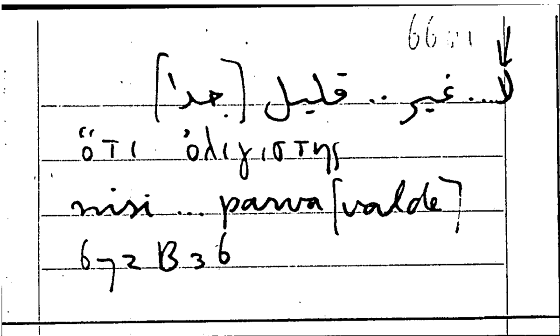 لا... غير .. قليل [جدا]
ὅτι ὀλιγίστης
nisi ... parva [valde]
672 B 36